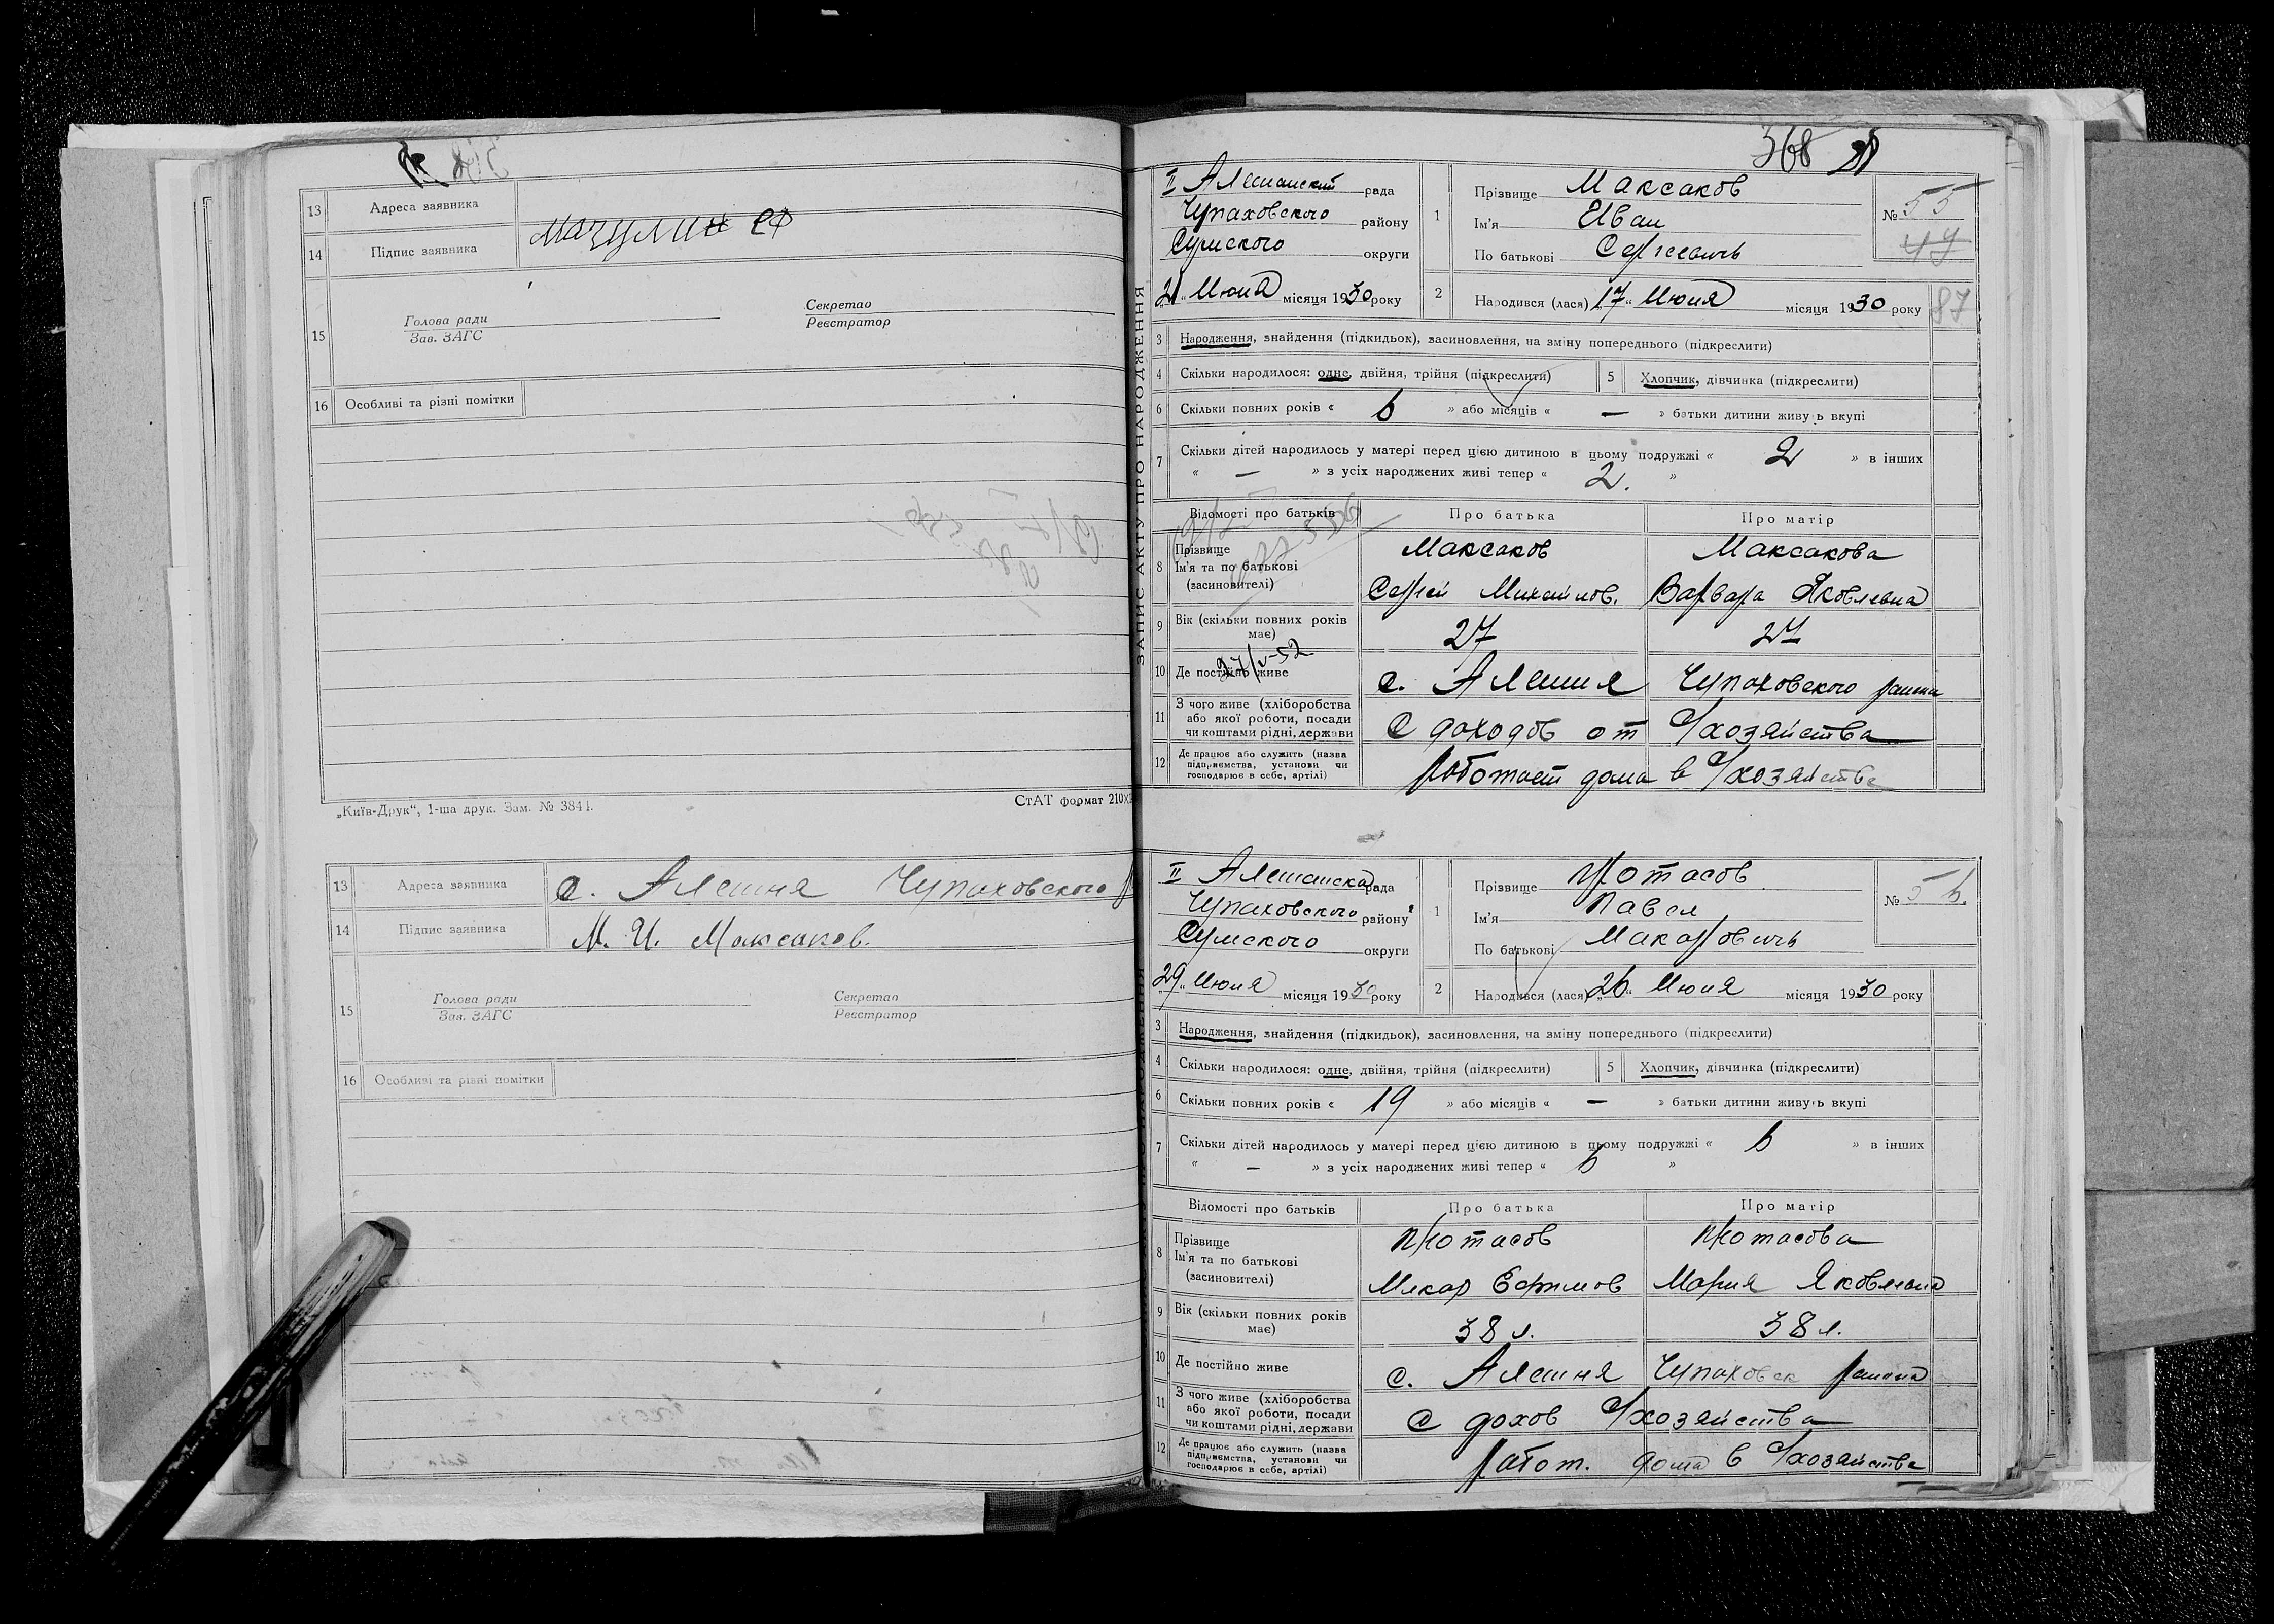 13 Адреса заявника
14 Підпис заявника Мачулин СФ
15 Голова ради Секретар
Зав. ЗАГС Реєстратор
16 Особливі та різні помітки
„Київ-Друк“, 1-ша друк. Зам. № 3841. СтАТ формат 210х
13 Адреса заявника с. Алешня Чупаховского р
14 Підпис заявника М. И. Максаков.
15 Голова ради Секретар
Зав. ЗАГС Реєстратор
16 Особливі та різні помітки
368
ЗАПИС АКТУ ПРО НАРОДЖЕННЯ
II Алешанский рада
Чупаховского району
Сумского округи
21 „ Июня місяця 1930 року
1 Прізвище Максаков
Ім'я Иван
По батькові Сергеевичь
№ 55
47
2 Народився (лася) „17“ Июня місяця 1930 року
87
3 Народження, знайдення (підкидьок), засиновлення, на зміну попереднього (підкреслити)
4 Скільки народилося: одне, двійня, трійня (підкреслити) 5 Хлопчик, дівчинка (підкреслити)
6 Скільки повних років « 6 » або місяців « — » батьки дитини живуть вкупі
7 Скільки дітей народилось у матері перед цією дитиною в цьому подружжі « 2 » в інших
« — » з усіх народжених живі тепер « 2. »
Відомості про батьків Про батька Про матір
8 Прізвище Максаков Максакова
Ім'я та по батькові
(засиновителі) Сергей Михайлов. Варвара Яковлевна
9 Вік (скільки повних років має) 27 27
27/V-52
10 Де постійно живе с. Алешня Чупаховского района
11 З чого живе (хліборобства
або якої роботи, посади
чи коштами рідні, держави С доходов от с/хозяйства
12 Де працює або служить (назва
підприємства, установи чи
господарює в себе, артілі) работает дома в с/хозяйстве
II Алешанска рада
Чупаховского району
Сумского округи
„29“ Июня місяця 1930 року
1 Прізвище Протасов
Ім'я Павел
По батькові Макаровичь
№ 56.
2 Народився (лася) „26“ Июня місяця 1930 року
3 Народження, знайдення (підкидьок), засиновлення, на зміну попереднього (підкреслити)
4 Скільки народилося: одне, двійня, трійня (підкреслити) 5 Хлопчик, дівчинка (підкреслити)
6 Скільки повних років « 19 » або місяців « — » батьки дитини живуть вкупі
7 Скільки дітей народилось у матері перед цією дитиною в цьому подружжі « 6 » в інших
« — » з усіх народжених живі тепер « 6 »
Відомості про батьків Про батька Про матір
8 Прізвище Протасов Протасова
Ім'я та по батькові
(засиновителі) Макар Ефимов Мария Яковлевна
9 Вік (скільки повних років має) 38 л. 38 л.
10 Де постійно живе с. Алешня Чупаховск района
11 З чого живе (хліборобства
або якої роботи, посади
чи коштами рідні, держави С дохов с/хозяйства
12 Де працює або служить (назва
підприємства, установи чи
господарює в себе, артілі) работ. дома в с/хозяйстве